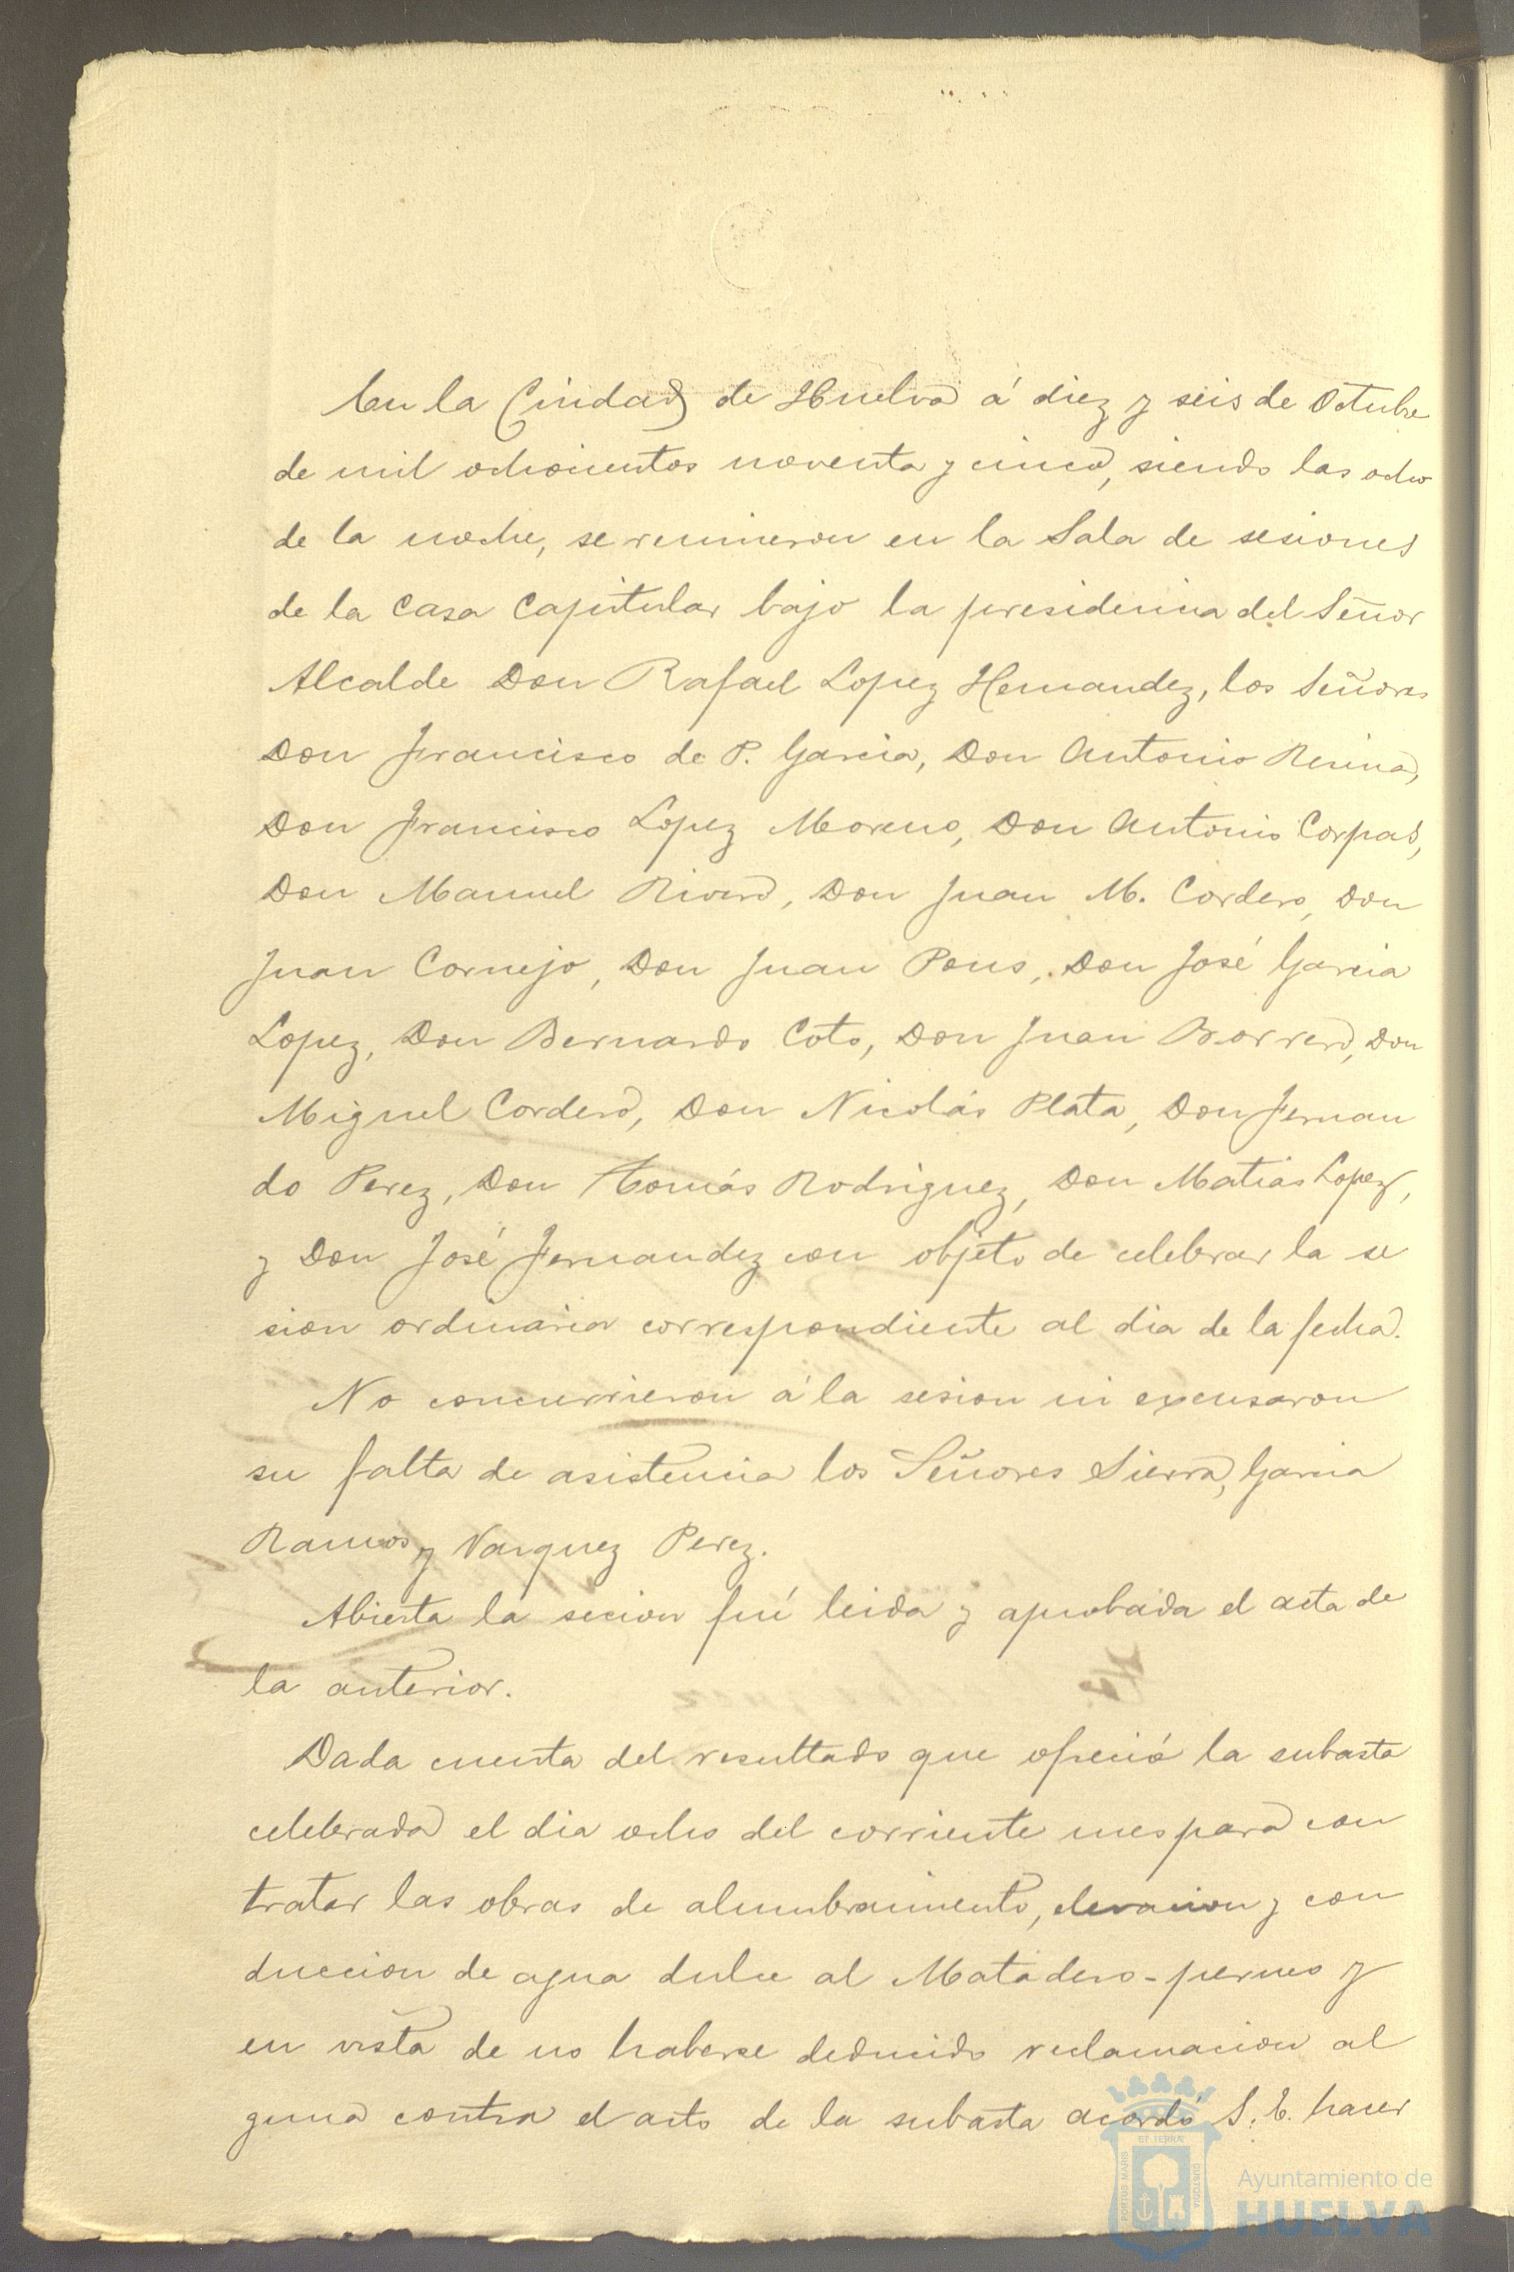 En la Ciudad de Huelva á diez y seis de Octubre
de mil ochocientos noventa y cinco, siendo las ocho
de la noche, se reunieron en la Sala de sesiones
de la Casa Capitular bajo la presidencia del Señor
Alcalde Don Rafael Lopez Hernandez, los Señores
Don Francisco de P. Garcia, Don Antonio Resina,
Don Francisco Lopez Moreno, Don Antonio Corpas,
Don Manuel Rivero, Don Juan M. Cordero, Don
Juan Cornejo, Don Juan Pons, Don José Garcia
Lopez, Don Bernardo Coto, Don Juan Borrero, Don
Miguel Cordero, Don Nicolás Plata, Don Fernan
do Perez, Don Tomás Rodriguez, Don Matias Lopez,
y Don José Fernandez con objeto de celebrar la se
sion ordinaria correspondiente al dia de la fecha.
No concurrieron á la sesion ni excusaron
su falta de asistencia los Señores Sierra, Garcia
Ramos y Vazquez Perez.
Abierta la secion fué leida y aprobada el acta de
la anterior.
Dada cuenta del resultado que ofreció la subasta
celebrada el dia ocho del corriente mes para con
tratar las obras de alumbramiento, elevacion y con
duccion de agua dulce al Matadero-
en vista de no haberse deducido reclamacion al
guna contra el acto de la subasta acordó S. E. hacer
PORTUS MARIS
ET TERRÆ
CUSTODIA
Ayuntamiento de
HUELVA